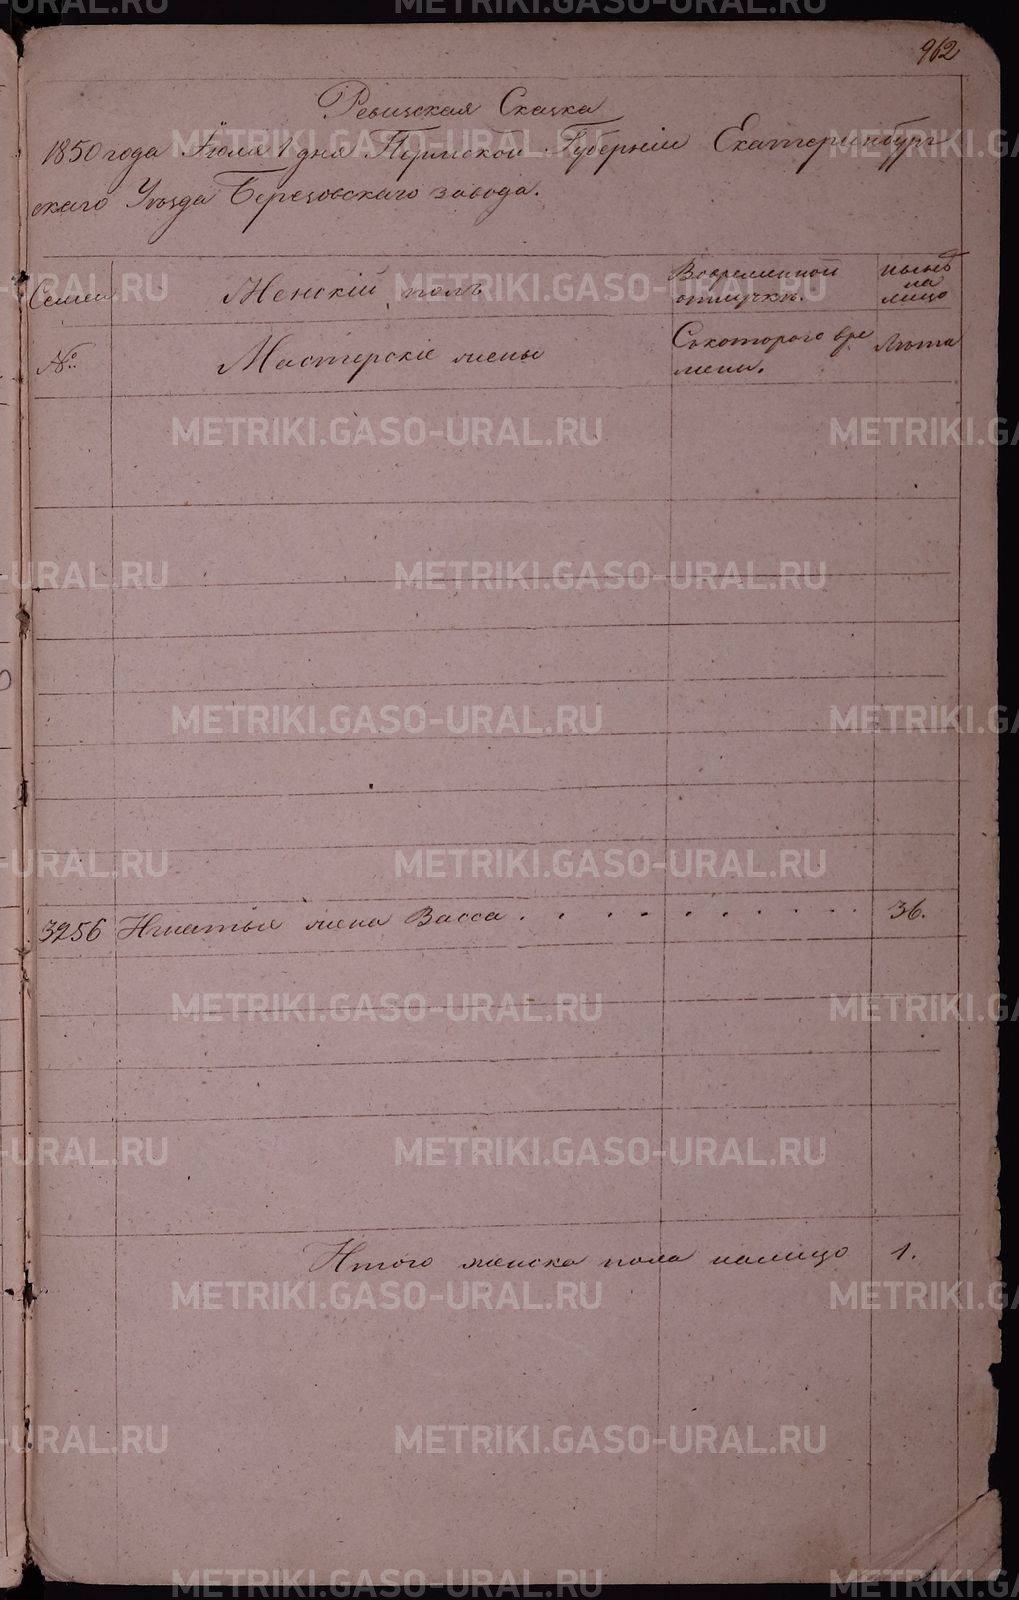 962
Ревизская Сказка
1850 года Іюля 1 дня Пермской Губерніи Екатеринбург
скаго Уѣзда Березовскаго завода.
Семьи
Женскій полъ
Вовременной отлучкѣ.
нынѣ на лицо
№
Мастерскіе жены
Съкотораго вре мени.
Лѣта
3256 Игнатья жена Васса . . . . . . . . . . 36.
Итого женска пола налицо 1.
METRIKI.GASO-URAL.RU